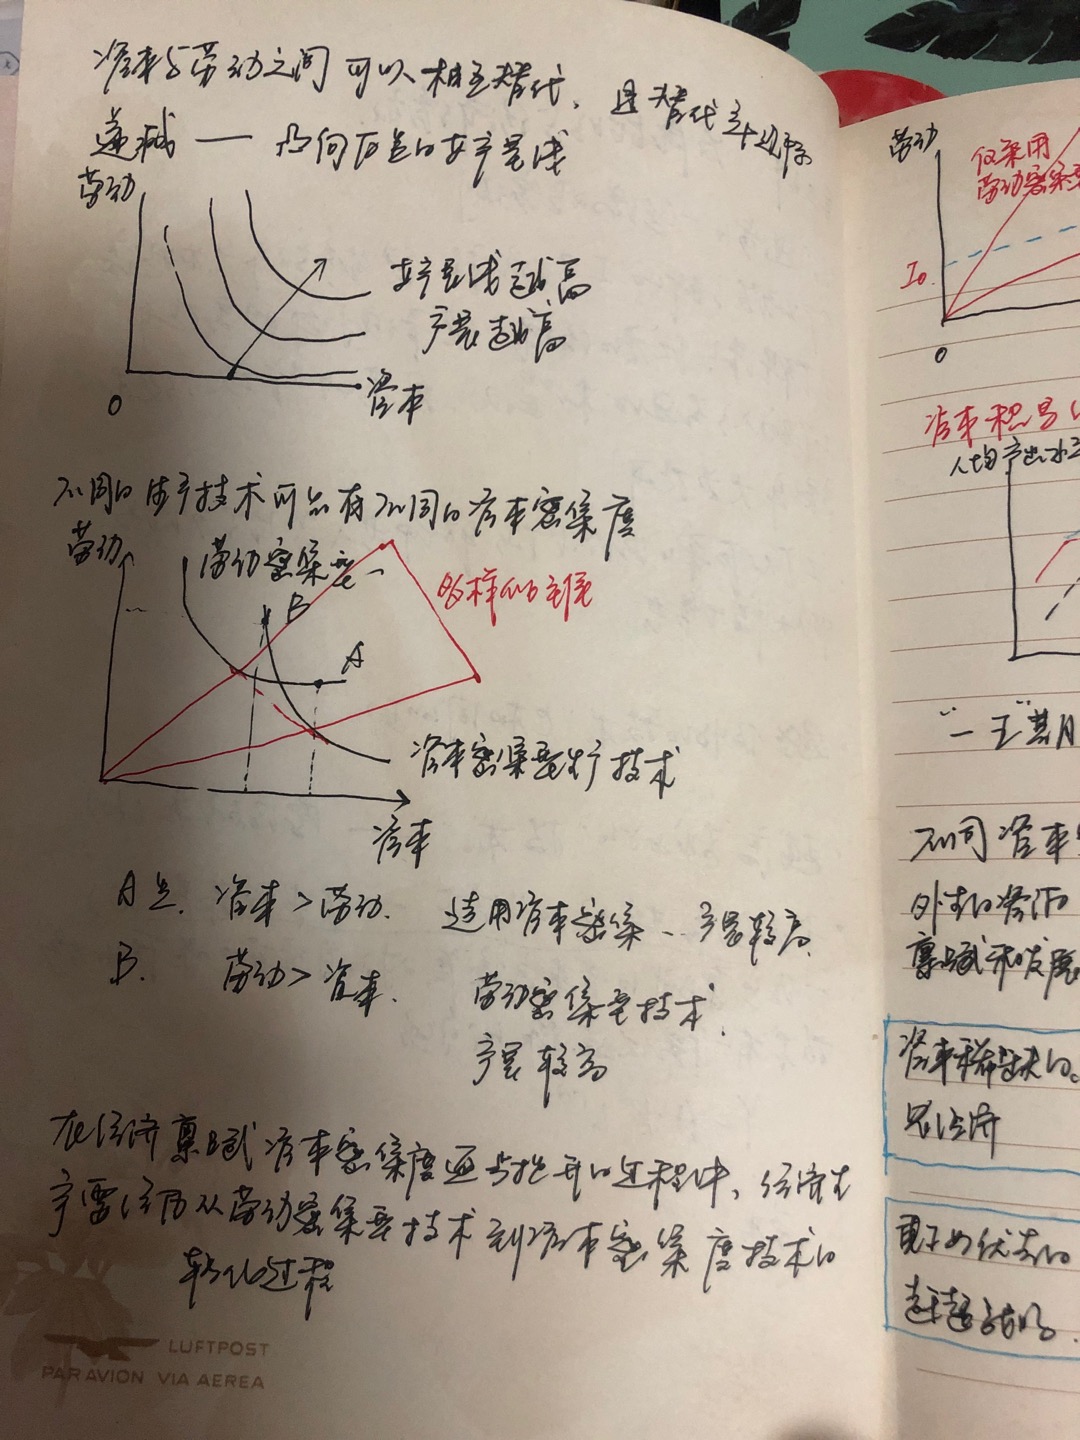 资本与劳动之间可以相互替代，且替代率边际
递减 — 凸向原点的等产量线
劳动
等产量线越高
产量越高
资本
0
不同的生产技术可以有不同的资本密集度
劳动
劳动密集型
B
多样化
A
资本密集型生产技术
资本
A点. 资本>劳动. 适用资本密集 产量较高.
B. 劳动>资本. 劳动密集型技术.
产量较高
在经济禀赋资本密集度逐步提升的过程中，经济生
产需经历从劳动密集型技术到资本密集度技术的
转化过程
LUFTPOST
PAR AVION VIA AEREA
劳动
仅采用
劳动密集型
I₀
0
资本积累
人均产出水平
不同资本
外生的
禀赋和发展
资本稀缺的
经济
更
赶超